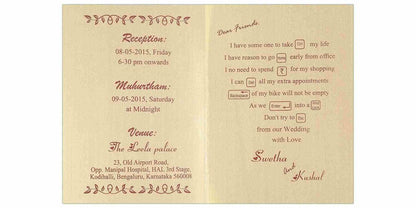 Reception:
08-05-2015, Friday
6-30 pm onwards
Muhurtham:
09-05-2015, Saturday
at Midnight
Venue:
The Leela palace
23, Old Airport Road,
Opp. Manipal Hospital, HAL 3rd Stage,
Kodihalli, Bengaluru, Karnataka 560008
Dear Friends,
I have some one to take my life
I have reason to go early from office
I no need to spend ₹ for my shopping
I can all my extra appointments
Backspace of my bike will not be empty
As we Enter into a
Don't try to
from our Wedding
with Love
Swetha
And
Kushal